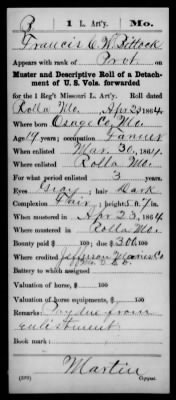 P 1 L. Art'y. Mo.
Francis C. W. Pittock
Appears with rank of Prvt. on
Muster and Descriptive Roll of a Detachment
of U. S. Vols. forwarded
for the 1 Reg't Missouri L. Art'y. Roll dated
Rolla Mo. Apr 23, 1864.
Where born Osage Co., Mo.
Age 19 years; occupation Farmer
When enlisted Mar. 30, 1864.
Where enlisted Rolla Mo.
For what period enlisted 3 years.
Eyes Gray; hair Dark
Complexion Fair; height 5 ft. 7 in.
When mustered in Apr 23, 1864
Where mustered in Rolla Mo.
Bounty paid $ 100; due $ 300 100
Where credited Jefferson
Battery to which assigned
Valuation of horse, $ 100
Valuation of horse equipments, $ 100
Remarks: Pay due from
enlistment
Book mark:
Martin
(339) Copyist.